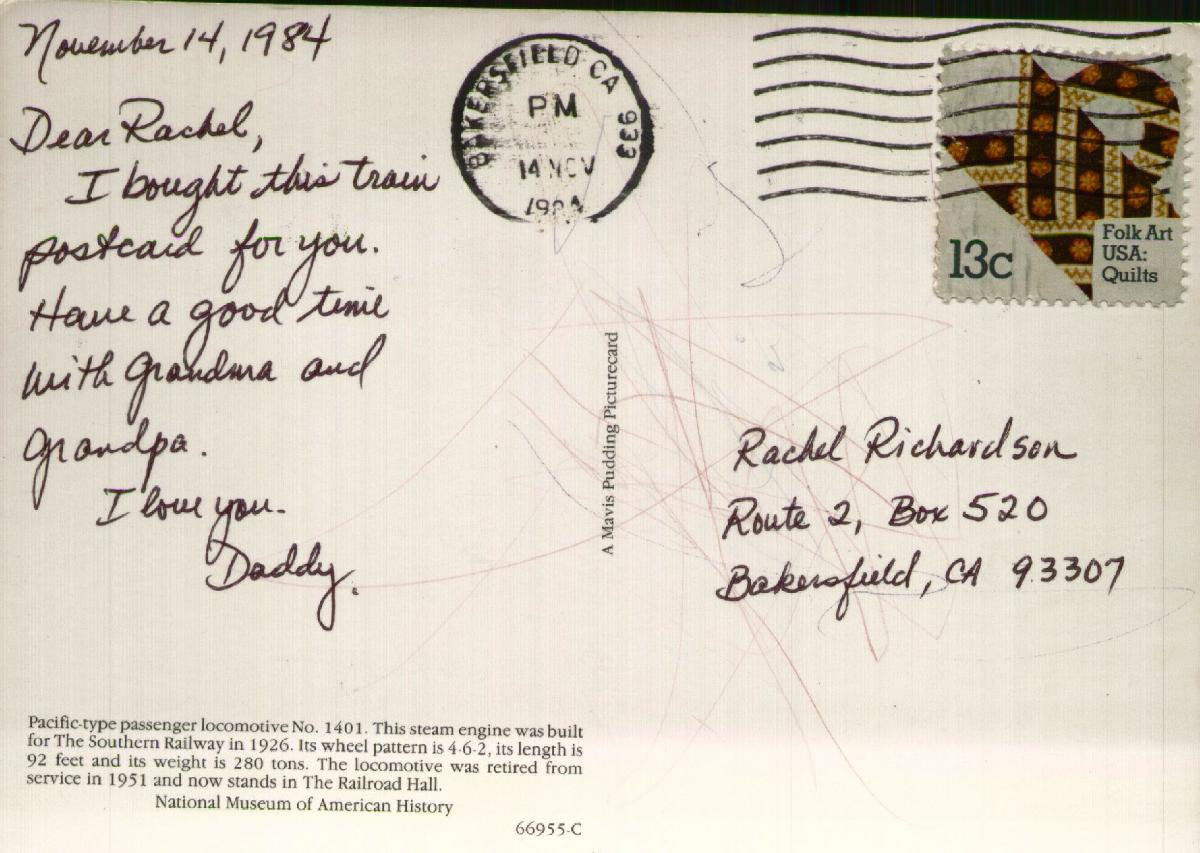 November 14, 1984
Dear Rachel,
I bought this train
postcard for you.
Have a good time
with Grandma and
Grandpa.
I love you.
Daddy.
Pacific-type passenger locomotive No. 1401. This steam engine was built
for The Southern Railway in 1926. Its wheel pattern is 4-6-2, its length is
92 feet and its weight is 280 tons. The locomotive was retired from
service in 1951 and now stands in The Railroad Hall.
National Museum of American History
66955-C
A Mavis Pudding Picturecard
BAKERSFIELD CA 933
PM
14 NOV
1984
13c
Folk Art
USA:
Quilts
Rachel Richardson
Route 2, Box 520
Bakersfield, CA 93307